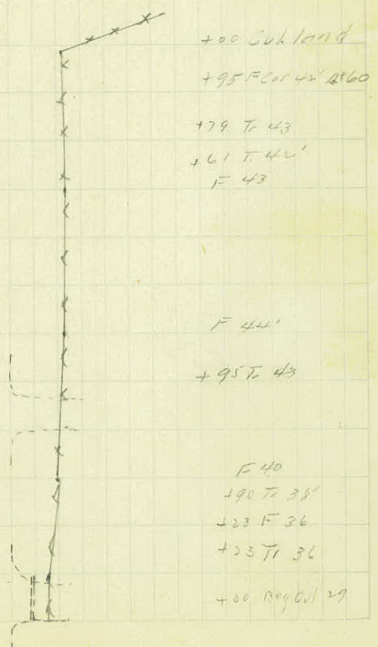 +00 Cul land
+95 F Cor 42' +60
+79 Tr 43
+61 Tr 42'
F 43
F 44'
+95 Tr 43
F 40
+90 Tr 38'
+23 F 36
+23 Tr 36
+00 Beg Cul 29